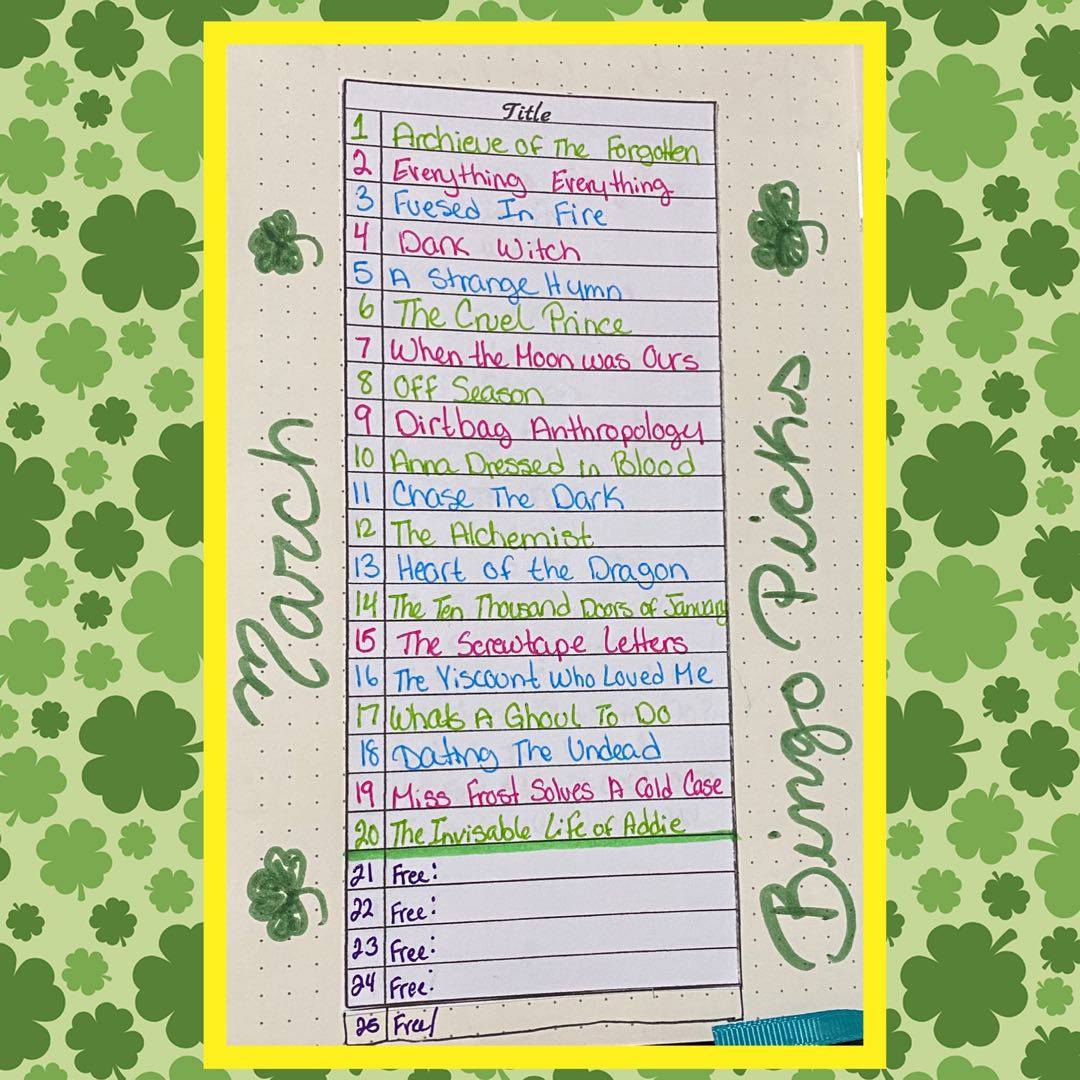 March
Bingo Picks
Title
1 Archieve of The Forgotten
2 Everything Everything
3 Fuesed In Fire
4 Dark Witch
5 A Strange Hymn
6 The Cruel Prince
7 When the Moon was Ours
8 Off Season
9 Dirtbag Anthropology
10 Anna Dressed in Blood
11 Chase The Dark
12 The Alchemist
13 Heart of the Dragon
14 The Ten Thousand Doors of January
15 The Screwtape Letters
16 The Viscount Who Loved Me
17 Whats A Ghoul To Do
18 Dating The Undead
19 Miss Frost Solves A Cold Case
20 The Invisable Life of Addie
21 Free:
22 Free:
23 Free:
24 Free:
25 Free/